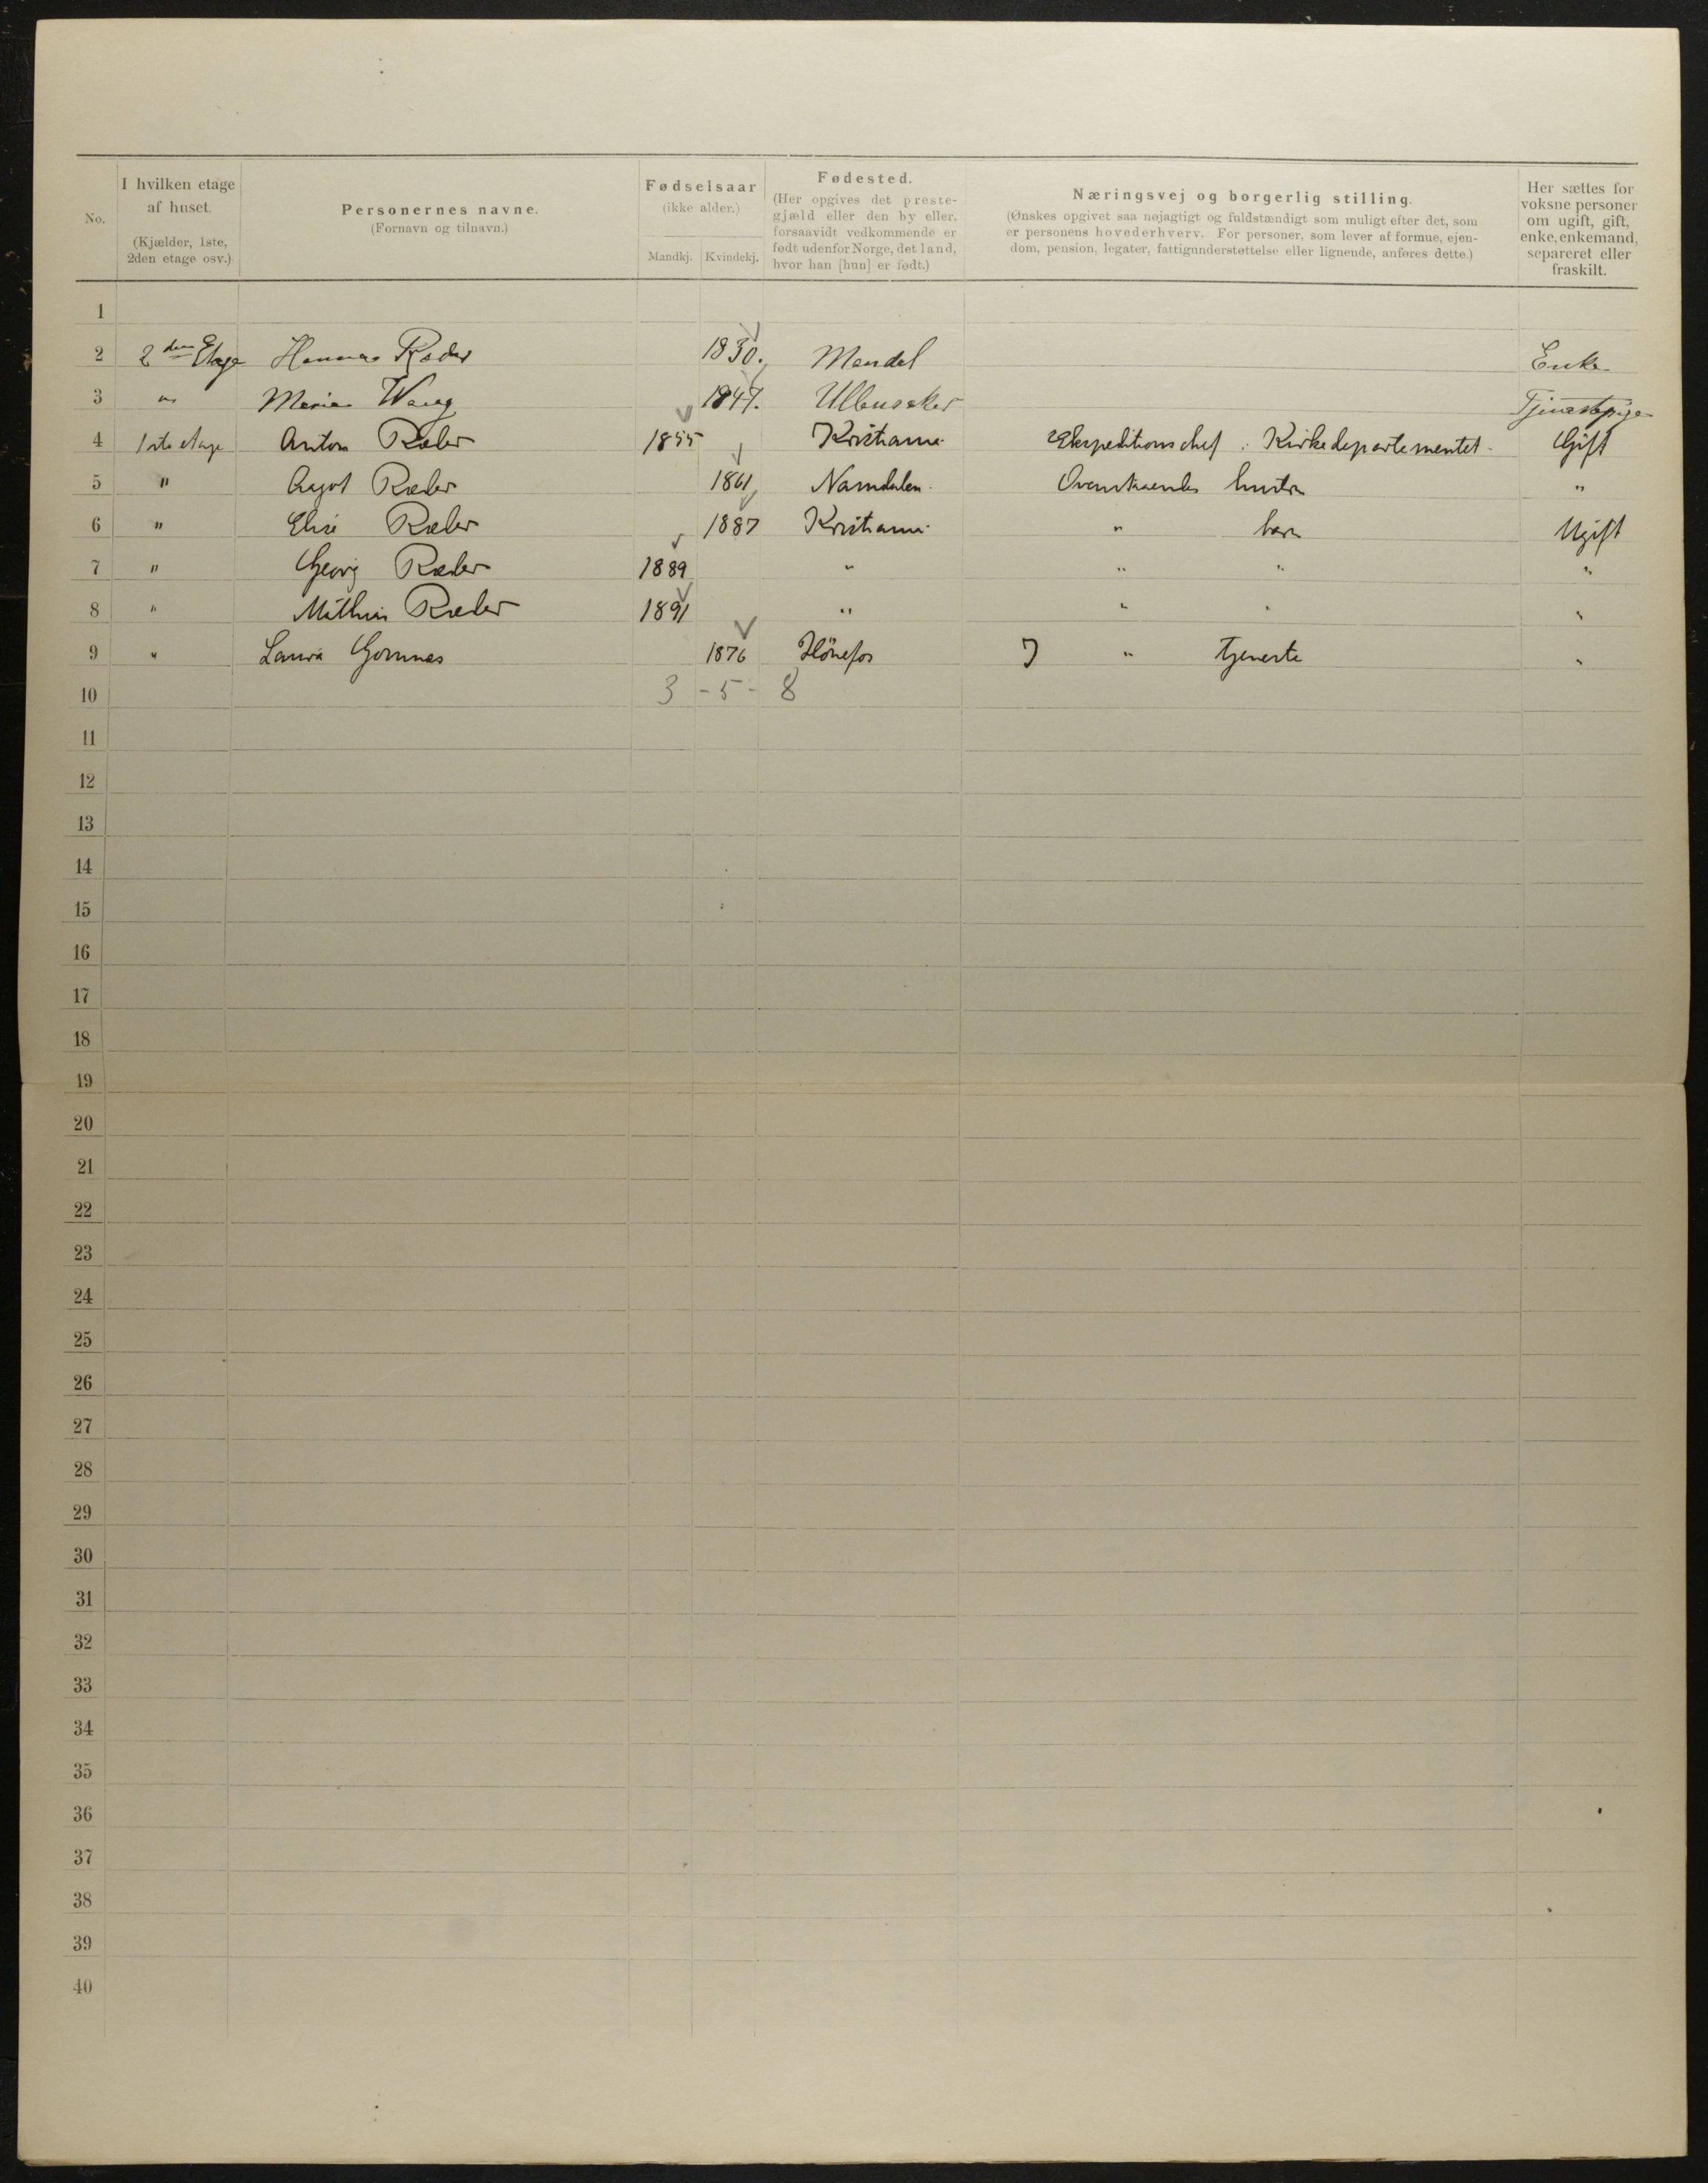 No.
I hvilken etage af huset.
(Kjælder, 1ste, 2den etage osv.)
Personernes navne.
(Fornavn og tilnavn.)
Fødselsaar
(ikke alder.)
Mandkj. Kvindekj.
Fødested.
(Her opgives det preste-
gjæld eller den by eller,
forsaavidt vedkommende er
født udenfor Norge, det land,
hvor han [hun] er født.)
Næringsvej og borgerlig stilling.
(Ønskes opgivet saa nøjagtigt og fuldstændigt som muligt efter det, som
er personens hovederhverv. For personer, som lever af formue, ejen-
dom, pension, legater, fattigunderstøttelse eller lignende, anføres dette.)
Her sættes for
voksne personer
om ugift, gift,
enke, enkemand,
separeret eller
fraskilt.
1
2 2den Etage Hanna Ræder 1830. Mandal Enke
3 " Maria 1847. Ullensaker Tjenestepige
4 1ste etage Anton Ræder 1855 Kristiania Ekspeditionschef i Kirkedepartementet. Gift
5 " Aagot Ræder 1861 Namdalen. Ovenstaaendes hustru "
6 " Elise Ræder 1887 Kristiania " barn Ugift
7 " Georg Ræder 1889 " " " "
8 " Mathias Ræder 1891 " " " "
9 " Laura 1876 Hönefos I " tjeneste "
10 3 - 5 - 8
11
12
13
14
15
16
17
18
19
20
21
22
23
24
25
26
27
28
29
30
31
32
33
34
35
36
37
38
39
40